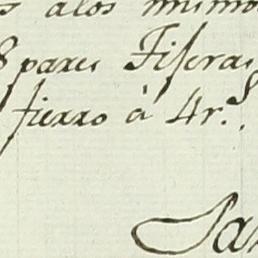 s alos mismo
8 pares Tiseras
fierro â 4 r.s
San